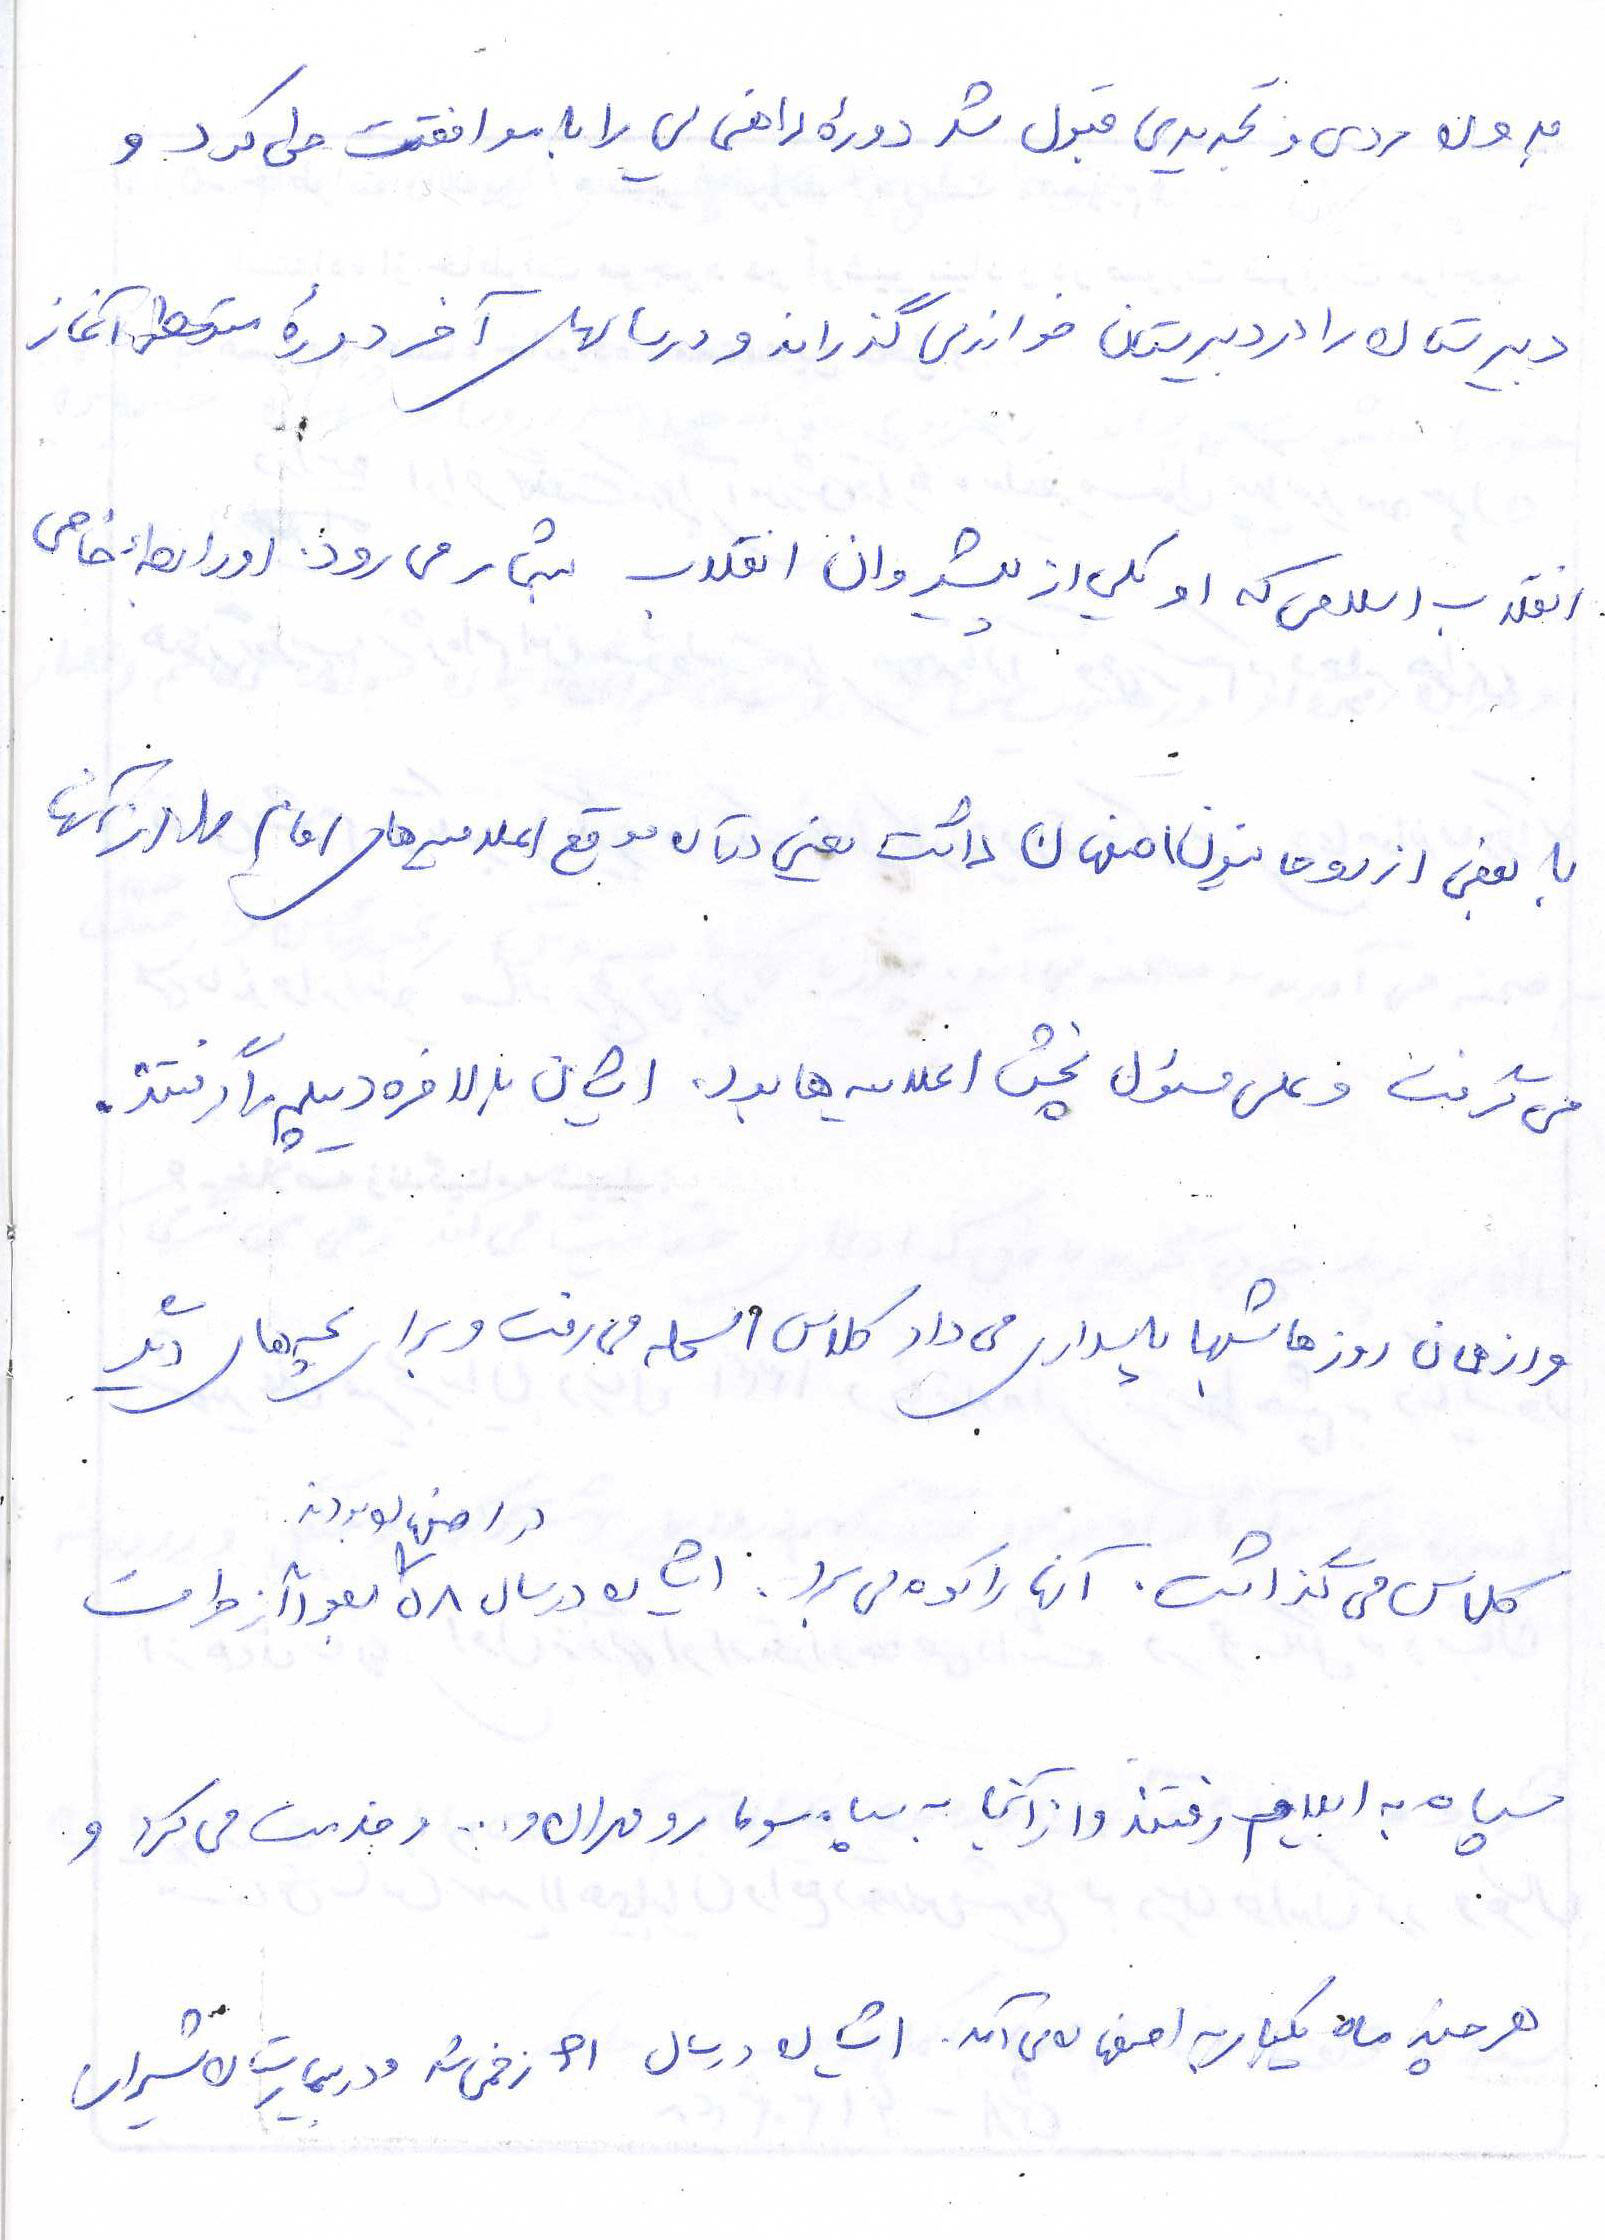 بدون مردی و تجدیدی قبول شد دورۀ راهنمایی را با موافقت طی کرد و
دبیرستان را در دبیرستان خوارزمی گذراند و در سالهای آخر دورۀ متوسطه آغاز
انقلاب اسلامی که او یکی از پیشروان انقلاب بشمار می رود. او رابطۀ خاصی
با بعضی از روحانیون اصفهان داشت یعنی در آن موقع اعلامیه های امام را از آنها
می گرفت و علی مسئول پخش اعلامیه ها بود. ایشان بالاخره دیپلم را گرفتند.
و در همان روزها شبها پاسداری می داد کلاس اسلحه می رفت و برای بچه های دیگر
در اصفهان بودند
کلاس می گذاشت. آنها را کوه می برد. ایشان در سال ۵۸ بعداً از طرف
سپاه به ایلام رفتند و از آنجا به سپاه سومار و مهران و ... و خدمت می کرد و
هر چند ماه یکبار به اصفهان می آمد. ایشان در سال ۶۱ زخمی شد و در بیمارستان شیراز